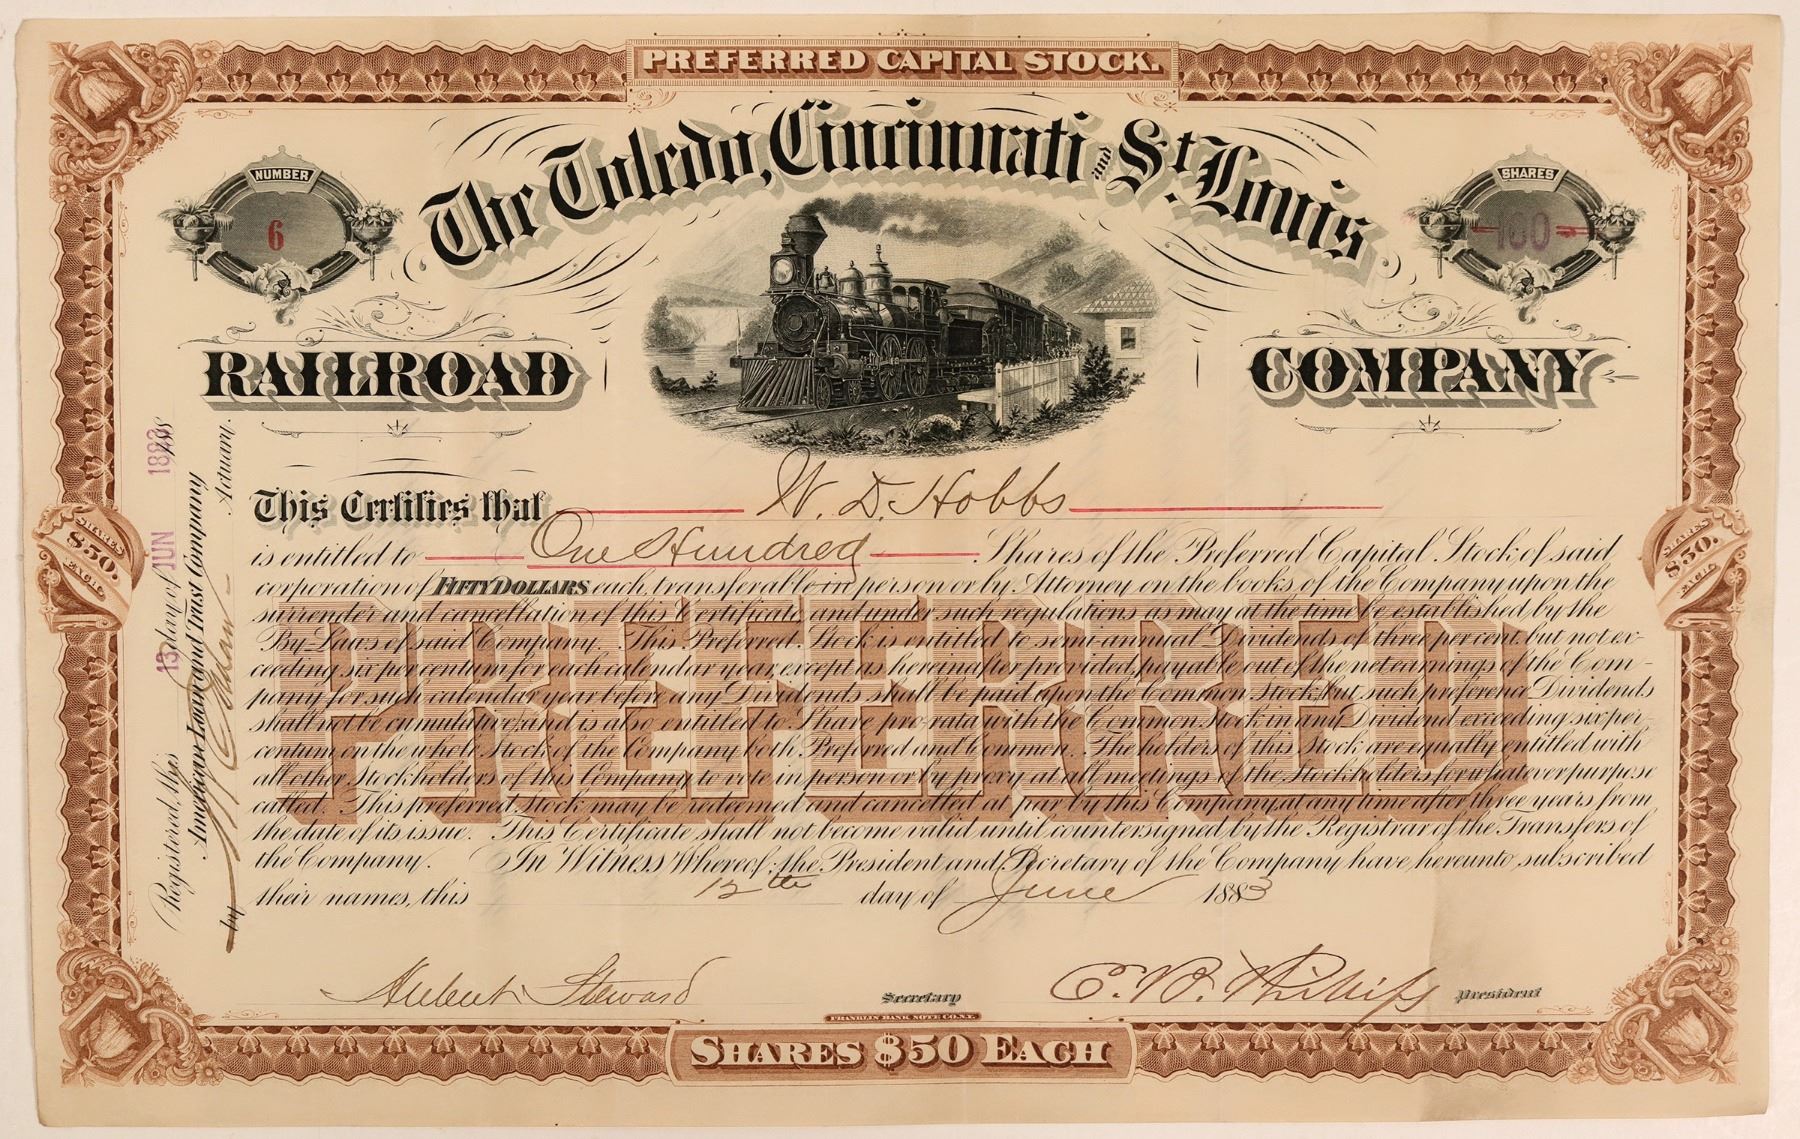 PREFERRED CAPITAL STOCK.
The Toledo, Cincinnati and St. Louis
NUMBER
6
SHARES
-100=
RAILROAD COMPANY
This Certifies that W. D. Hobbs
is entitled to One Hundred Shares of the Preferred Capital Stock of said
corporation of FIFTY DOLLARS each, transferable in person or by Attorney on the books of the Company upon the
surrender and cancellation of this Certificate and under such regulations as may at the time be established by the
By-Laws of said Company. This Preferred Stock is entitled to semi-annual Dividends of three per cent. but not ex-
ceeding six per centum for each calendar year, except as hereinafter provided, payable out of the net earnings of the Com-
pany for such calendar year before any Dividends shall be paid upon the Common Stock, but such preference Dividends
shall not be cumulative, and is also entitled to Share pro-rata with the Common Stock in any Dividend exceeding six per-
centum on the whole Stock of the Company both Preferred and Common. The holders of this Stock are equally entitled with
all other Stockholders of this Company to vote in person or by proxy at all meetings of the Stockholders for whatever purpose
called. This preferred Stock may be redeemed and cancelled at par by this Company, at any time after three years from
the date of its issue. This Certificate shall not become valid until countersigned by the Registrar of the Transfers of
the Company. In Witness Whereof, the President and Secretary of the Company have hereunto subscribed
their names, this 12th day of June 1883
PREFERRED
Registered, this 13 day of JUN 1883
American Loan and Trust Company
by Actuary.
SHARES $50. EACH
SHARES $50. EACH
Hubert Steward Secretary
C. B. Phillips President
FRANKLIN BANK NOTE CO. N.Y.
SHARES $50 EACH